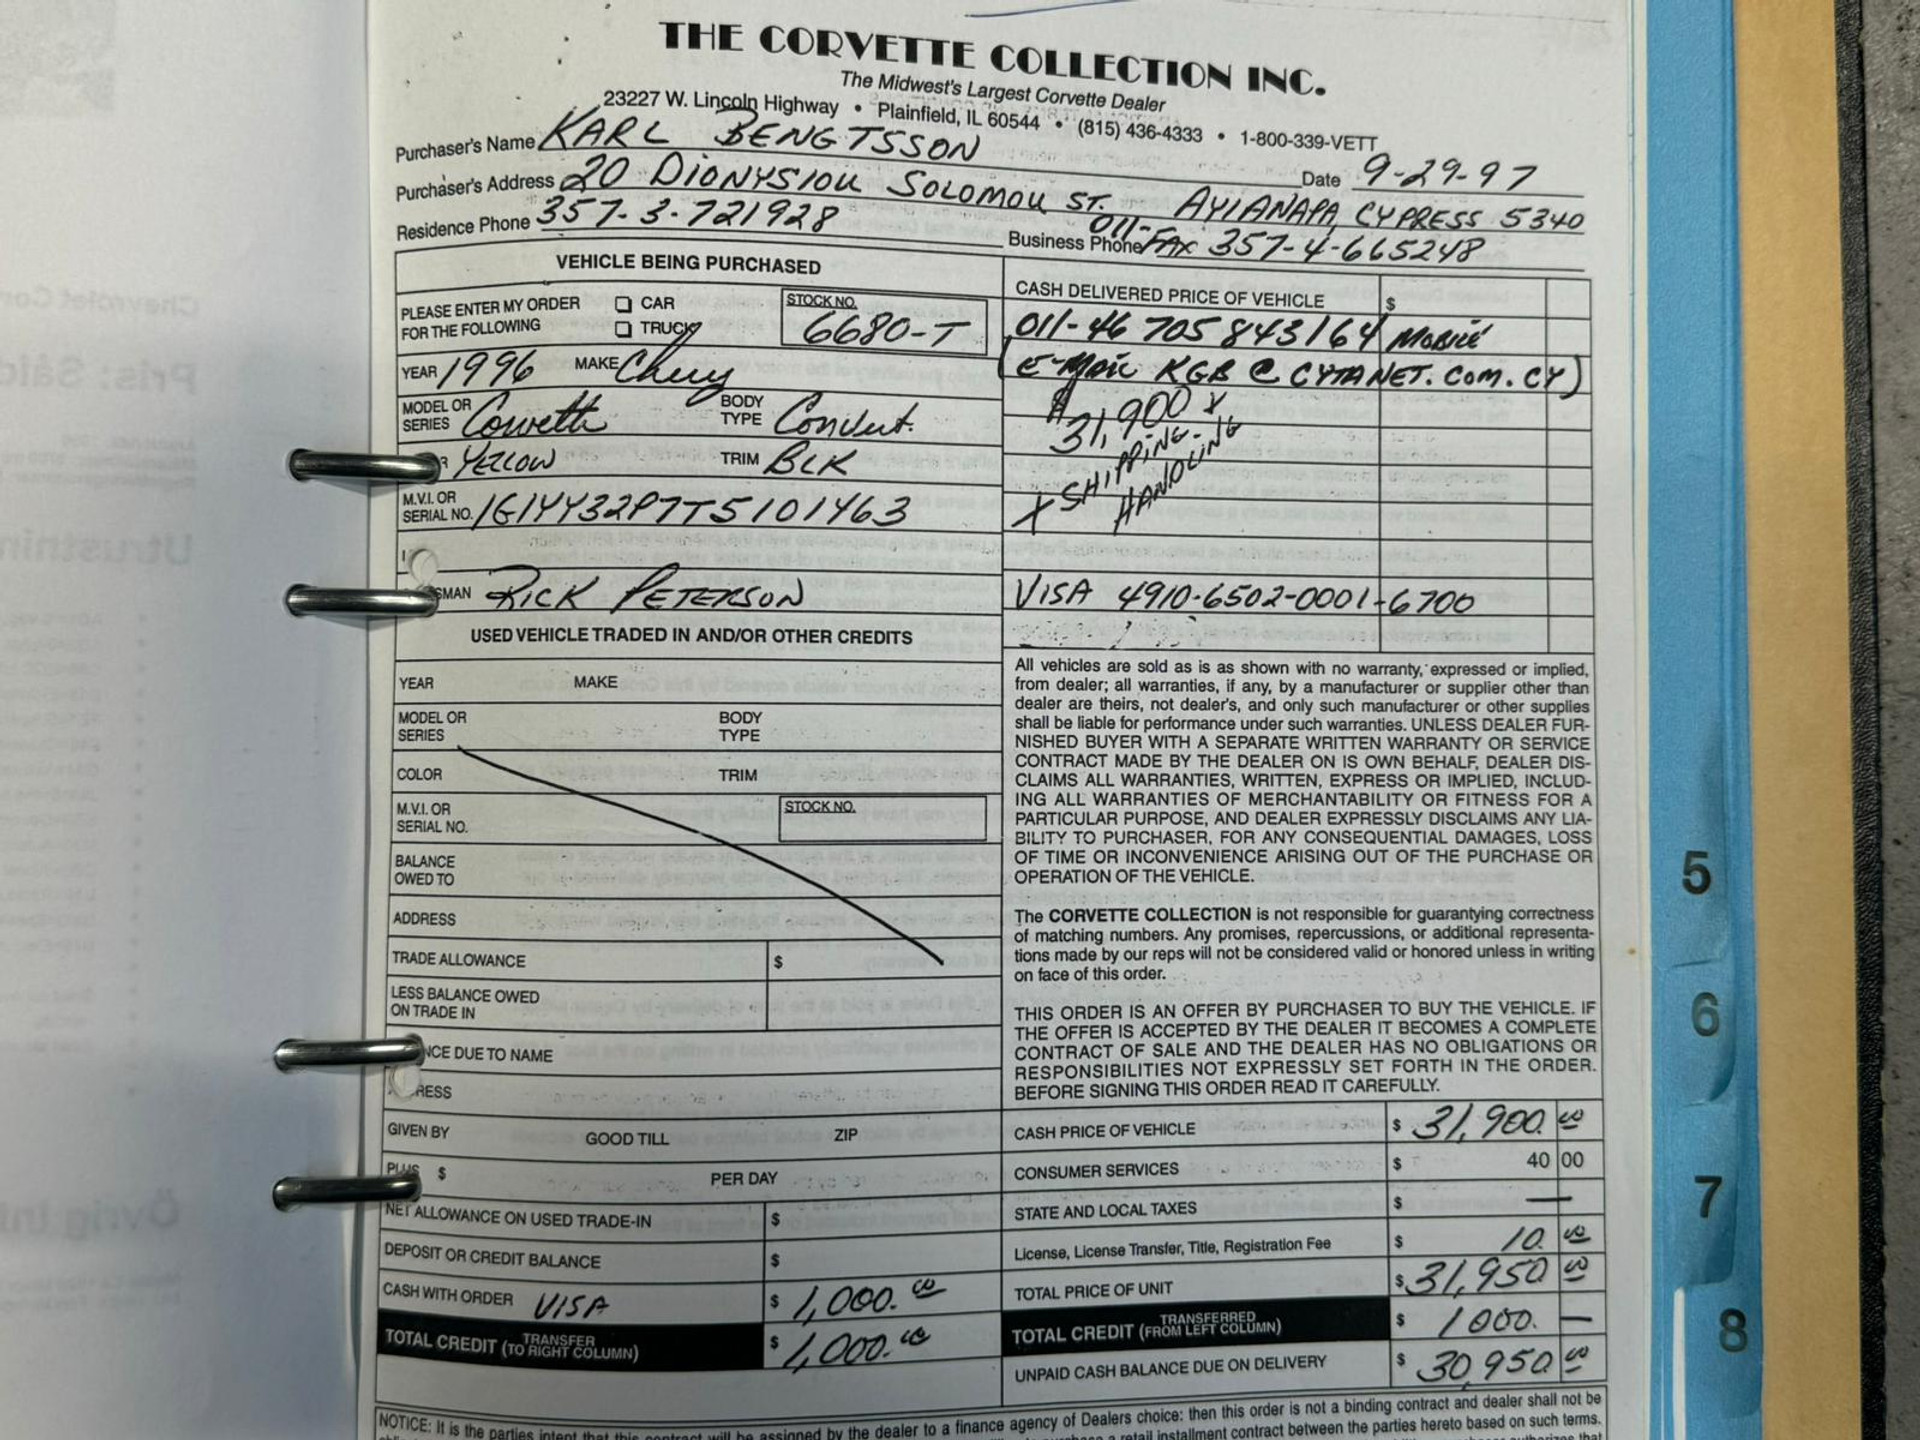 THE CORVETTE COLLECTION INC.
The Midwest's Largest Corvette Dealer
23227 W. Lincoln Highway • Plainfield, IL 60544 • (815) 436-4333 • 1-800-339-VETT
Purchaser's Name KARL BENGTSSON Date 9-29-97
Purchaser's Address 20 DIONYSIOU SOLOMOU ST. AYIANAPA, CYPRESS 5340
Residence Phone 357-3-721928 Business Phone 011- FAX 357-4-665248
VEHICLE BEING PURCHASED
PLEASE ENTER MY ORDER FOR THE FOLLOWING
CAR
TRUCK
STOCK NO.
6680-T
YEAR 1996 MAKE Chevy
MODEL OR SERIES Corvette BODY TYPE Convert.
R YELLOW TRIM BLK
M.V.I. OR SERIAL NO. 1G1YY32P7T5101463
SMAN RICK PETERSON
CASH DELIVERED PRICE OF VEHICLE $
011-46 705 843164 MOBILE
(E-MAIL KGB @ CYTANET.COM.CY)
$31,900
+ SHIPPING - HANDLING
VISA 4910-6502-0001-6700
USED VEHICLE TRADED IN AND/OR OTHER CREDITS
YEAR MAKE
MODEL OR SERIES BODY TYPE
COLOR TRIM
M.V.I. OR SERIAL NO. STOCK NO.
BALANCE OWED TO
ADDRESS
TRADE ALLOWANCE $
LESS BALANCE OWED ON TRADE IN
NCE DUE TO NAME
RESS
GIVEN BY GOOD TILL ZIP
PLUS $ PER DAY
NET ALLOWANCE ON USED TRADE-IN $
DEPOSIT OR CREDIT BALANCE $
CASH WITH ORDER VISA $ 1,000.00
TOTAL CREDIT (TRANSFER TO RIGHT COLUMN) $ 1,000.00
All vehicles are sold as is as shown with no warranty, expressed or implied,
from dealer; all warranties, if any, by a manufacturer or supplier other than
dealer are theirs, not dealer's, and only such manufacturer or other supplies
shall be liable for performance under such warranties. UNLESS DEALER FUR-
NISHED BUYER WITH A SEPARATE WRITTEN WARRANTY OR SERVICE
CONTRACT MADE BY THE DEALER ON IS OWN BEHALF, DEALER DIS-
CLAIMS ALL WARRANTIES, WRITTEN, EXPRESS OR IMPLIED, INCLUD-
ING ALL WARRANTIES OF MERCHANTABILITY OR FITNESS FOR A
PARTICULAR PURPOSE, AND DEALER EXPRESSLY DISCLAIMS ANY LIA-
BILITY TO PURCHASER, FOR ANY CONSEQUENTIAL DAMAGES, LOSS
OF TIME OR INCONVENIENCE ARISING OUT OF THE PURCHASE OR
OPERATION OF THE VEHICLE.
The CORVETTE COLLECTION is not responsible for guarantying correctness
of matching numbers. Any promises, repercussions, or additional representa-
tions made by our reps will not be considered valid or honored unless in writing
on face of this order.
THIS ORDER IS AN OFFER BY PURCHASER TO BUY THE VEHICLE. IF
THE OFFER IS ACCEPTED BY THE DEALER IT BECOMES A COMPLETE
CONTRACT OF SALE AND THE DEALER HAS NO OBLIGATIONS OR
RESPONSIBILITIES NOT EXPRESSLY SET FORTH IN THE ORDER.
BEFORE SIGNING THIS ORDER READ IT CAREFULLY.
CASH PRICE OF VEHICLE $ 31,900.00
CONSUMER SERVICES $ 40 00
STATE AND LOCAL TAXES $ —
License, License Transfer, Title, Registration Fee $ 10.00
TOTAL PRICE OF UNIT $ 31,950 00
TOTAL CREDIT (TRANSFERRED FROM LEFT COLUMN) $ 1000. —
UNPAID CASH BALANCE DUE ON DELIVERY $ 30,950.00
NOTICE: It is the parties intent that this contract will be assigned by the dealer to a finance agency of Dealers choice: then this order is not a binding contract and dealer shall not be
a retail installment contract between the parties hereto based on such terms.
5
6
7
8